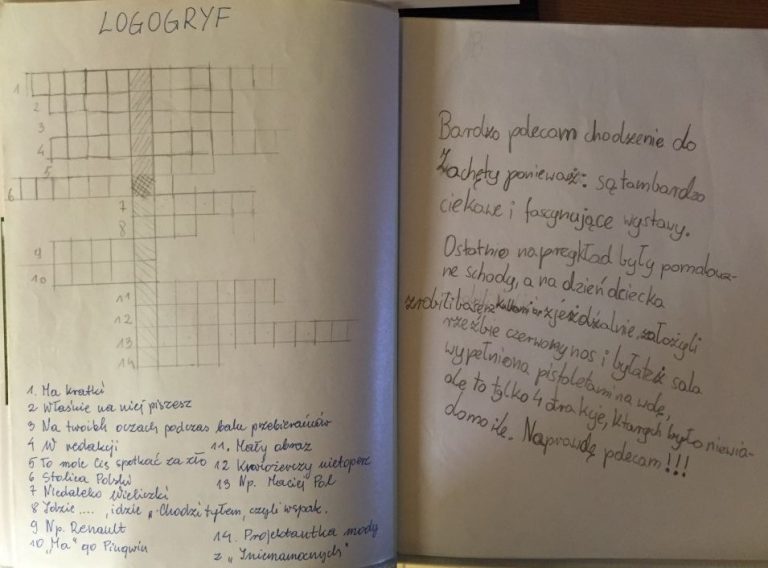 LOGOGRYF
1
2
3
4
5
6
7
8
9
10
11
12
13
14
1. Ma kratki
2 Właśnie na niej piszesz
3 Na twoich oczach podczas balu przebierańców
4 W redakcji
5 To może Cię spotkać za zło
6 Stolica Polski
7 Niedaleko Wieliczki
8 Idzie .... , idzie „. Chodzi tyłem, czyli wspak.
9 Np. Renault
10 „Ma" go Pingwin
11. Mały obraz
12 Krwiożerczy nietoperz
13 Np. Maciej Pol
14. Projektantka mody
z „Iniemamocnych"
Bardzo polecam chodzenie do
Zachęty ponieważ: są tam bardzo
ciekawe i fascynujące wystawy.
Ostatnio na przegkład były pomalowa-
ne schody, a na dzień dziecka
zrobili basen z kulkami zjeżdżalnie, założyli
rzeźbie czerwony nos i była też sala
wypełniona pistoletami na wodę,
ale to tylko 4 atrakcje, ktarych było niewia-
domo ile. Naprawdę polecam!!!